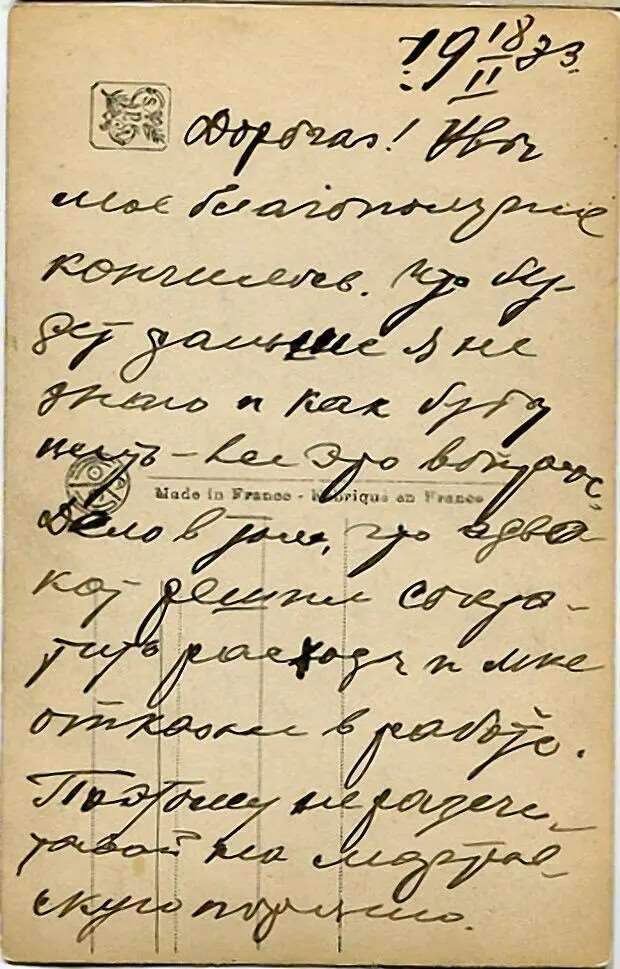 19 18/II 33.
Дорогая! Ну вот
мое благополучие
кончилось. Что бу-
дет дальше я не
знаю и как буду
жить – все это вопросы.
Дело в том, что адво-
кат решил сокра-
тить расходы и мне
отказал в работе.
Поэтому не рассчи-
тывай на мартов-
скую
Made in France - Fabriqué en France